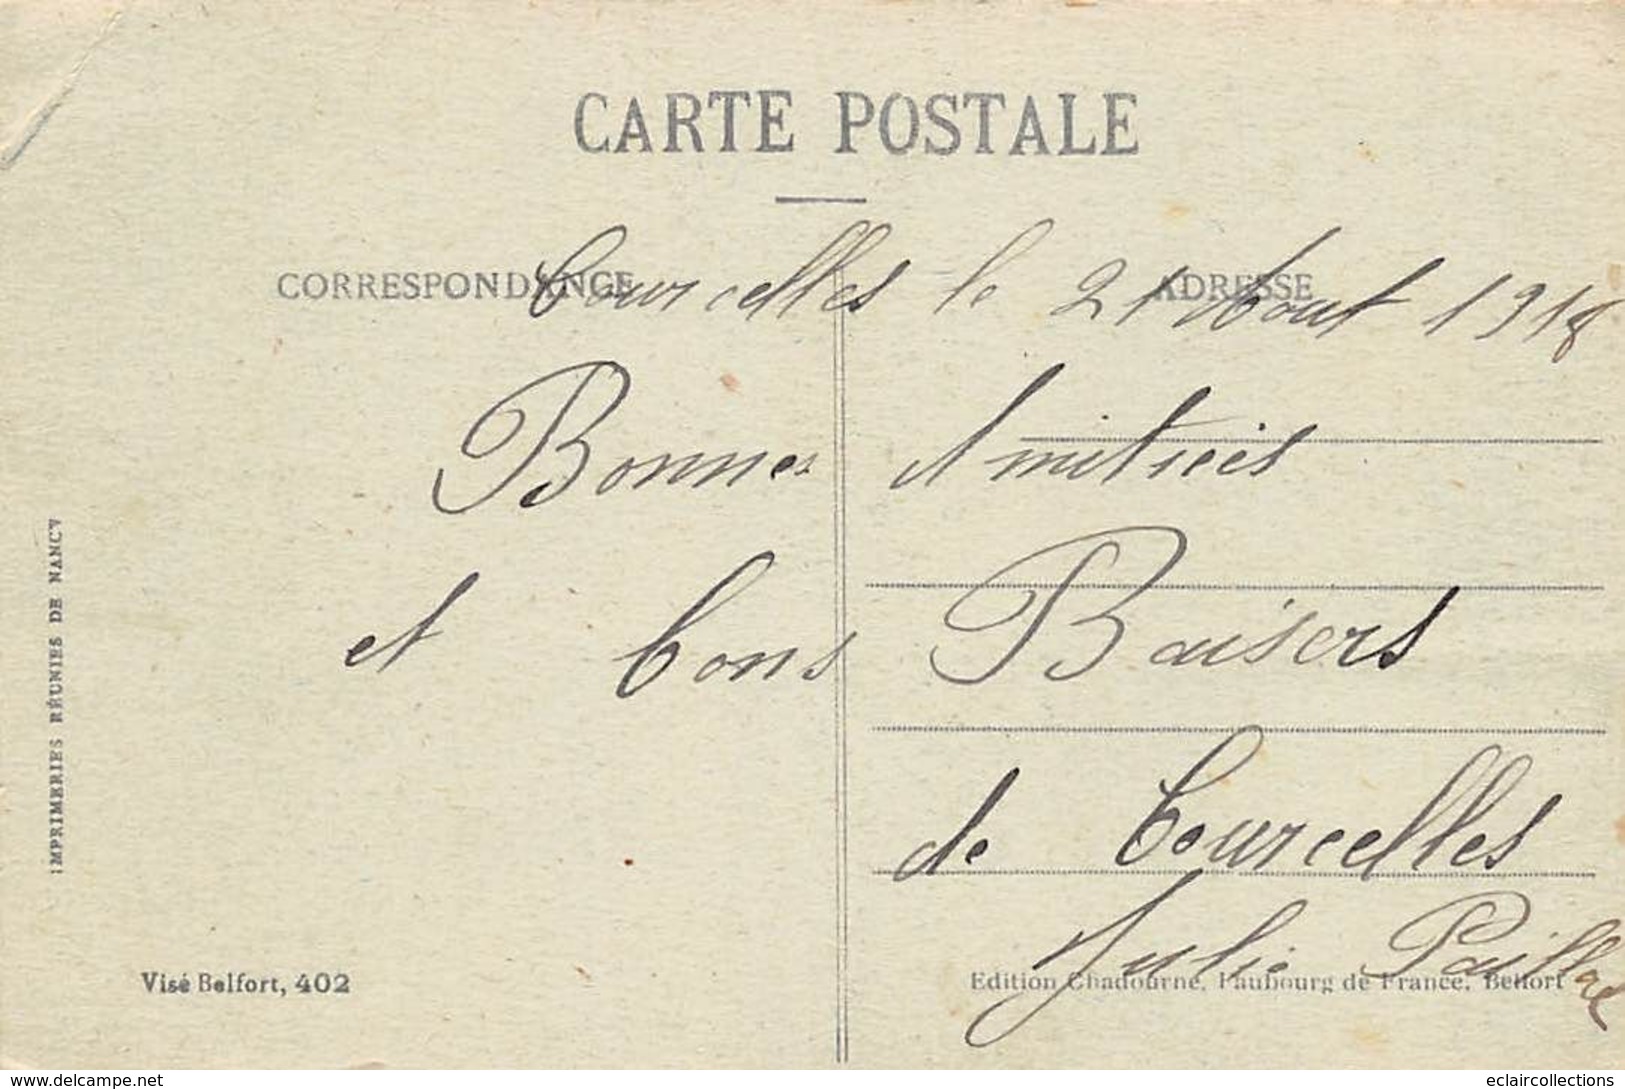 CARTE POSTALE
CORRESPONDANCE
ADRESSE
Courcelles le 21 Aout 1918
Bonnes Amitiées
et bons Baisers
de Courcelles
Julie
IMPRIMERIES RÉUNIES DE NANCY
Visé Belfort, 402
Edition Chadourne, Faubourg de France, Belfort
www.delcampe.net
eclaircollections